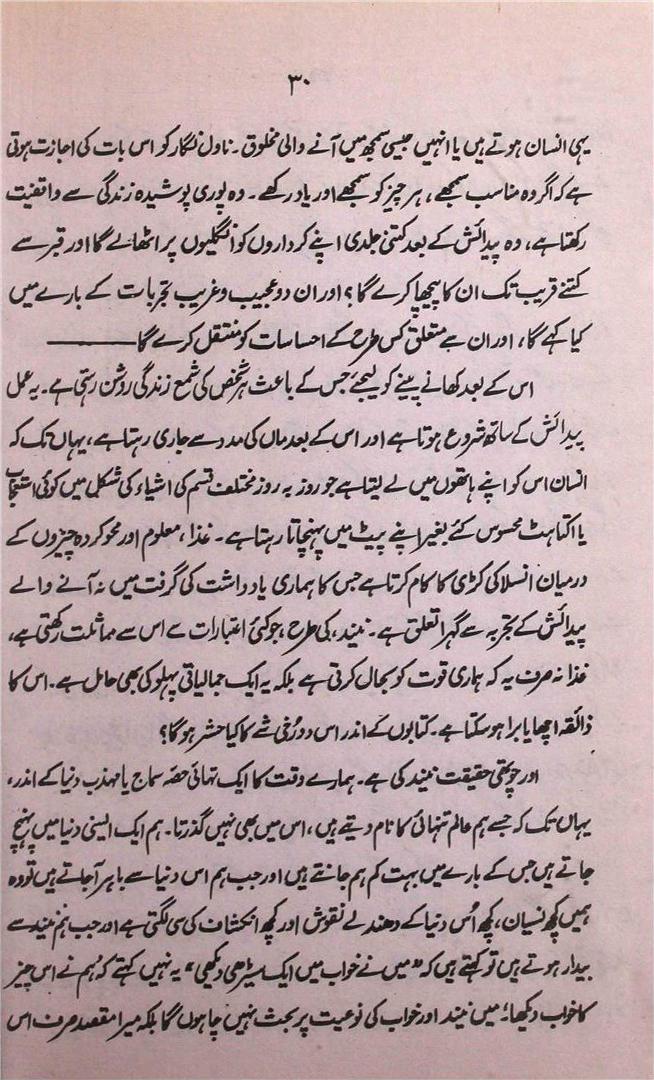 ۳۰
یہی انسان ہوتے ہیں یا انہیں جیسی سمجھ میں آنے والی مخلوق۔ ناول نگار کو اس بات کی اجازت ہوتی
ہے کہ اگر وہ مناسب سمجھے، ہر چیز کو سمجھے اور یاد رکھے۔ وہ پوری پوشیدہ زندگی سے واقفیت
رکھتا ہے، وہ پیدائش کے بعد کتنی جلدی اپنے کرداروں کو انگلیوں پر اٹھالے گا اور قبر سے
کتنے قریب تک ان کا پیچھا کرے گا؟ اور ان دو عجیب و غریب تجربات کے بارے میں
کیا کہے گا، اور ان سے متعلق کس طرح کے احساسات کو منتقل کرے گا ـــــــــ
اس کے بعد کھانے پینے کو لیجئے جس کے باعث ہر شخص کی شمع زندگی روشن رہتی ہے۔ یہ عمل
پیدائش کے ساتھ شروع ہوتا ہے اور اس کے بعد ماں کی مدد سے جاری رہتا ہے، یہاں تک کہ
انسان اس کو اپنے ہاتھوں میں لے لیتا ہے جو روز بہ روز مختلف قسم کی اشیاء کی شکل میں کوئی استعجاب
یا اکتاہٹ محسوس کئے بغیر اپنے پیٹ میں پہنچاتا رہتا ہے۔ غذا، معلوم اور محو کردہ چیزوں کے
درمیان انسلاکی کڑی کا کام کرتا ہے جس کا ہماری یادداشت کی گرفت میں نہ آنے والے
پیدائش کے تجربہ سے گہرا تعلق ہے۔ نیند، کی طرح، جو کئی اعتبارات سے اس سے مماثلت رکھتی ہے،
غذا نہ صرف یہ کہ ہماری قوت کو بحال کرتی ہے بلکہ یہ ایک جمالیاتی پہلو کی بھی حامل ہے۔ اس کا
ذائقہ اچھا یا برا ہو سکتا ہے۔ کتابوں کے اندر اس دو رُخی شے کا کیا حشر ہوگا؟
اور چوتھی حقیقت نیند کی ہے۔ ہمارے وقت کا ایک تہائی حصّہ سماج یا مہذب دنیا کے اندر،
یہاں تک کہ جسے ہم عالم تنہائی کا نام دیتے ہیں، اس میں بھی نہیں گذرتا۔ ہم ایک ایسی دنیا میں پہنچ
جاتے ہیں جس کے بارے میں بہت کم ہم جانتے ہیں اور جب ہم اس دنیا سے باہر آجاتے ہیں تو وہ
ہمیں کچھ نسیان، کچھ اُس دنیا کے دھندلے نقوش اور کچھ انکشاف کی سی لگتی ہے اور جب ہم نیند سے
بیدار ہوتے ہیں تو کہتے ہیں کہ "میں نے خواب میں ایک سیڑھی دیکھی" یہ نہیں کہتے کہ ہم نے اس چیز
کا خواب دیکھا۔ میں نیند اور خواب کی نوعیت پر بحث نہیں چاہوں گا بلکہ میرا مقصد صرف اس